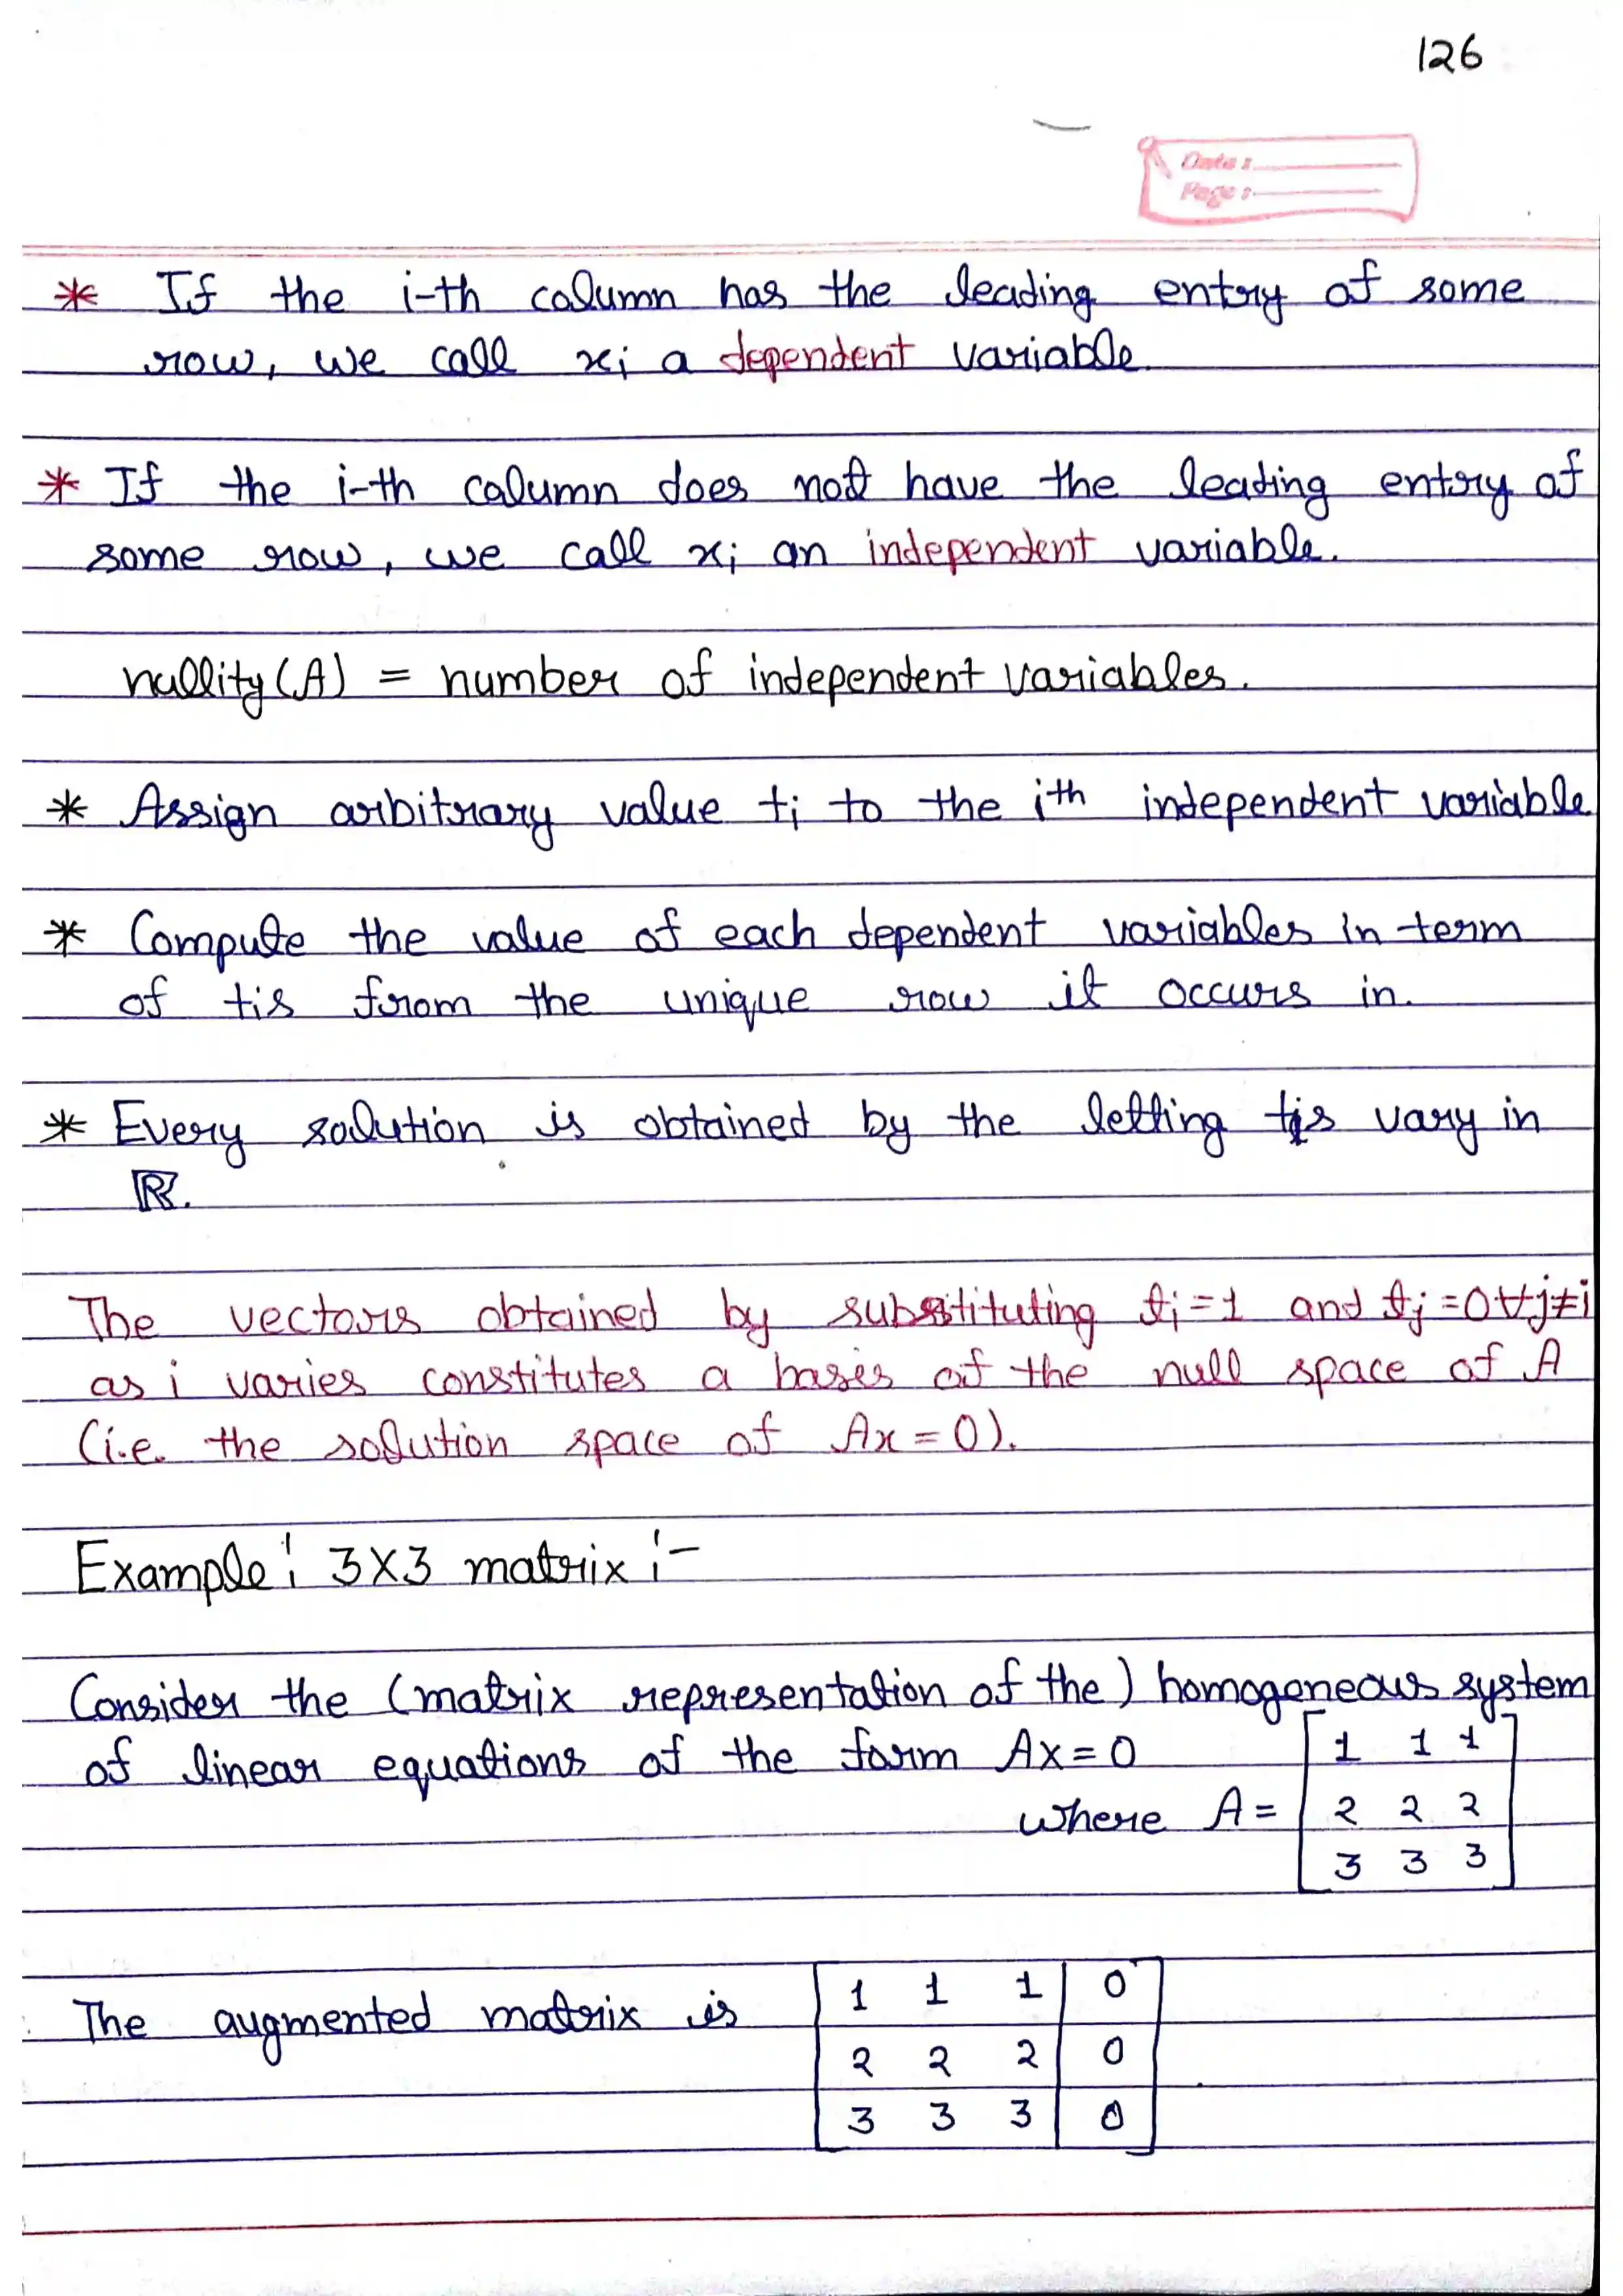 126
Date :
Page :
* If the i-th column has the leading entry of some
row, we call xi a dependent variable.
* If the i-th column does not have the leading entry of
some row, we call xi an independent variable.
nullity (A) = number of independent variables.
* Assign arbitrary value ti to the ith independent variable
* Compute the value of each dependent variables in term
of tis from the unique row it occurs in.
* Every solution is obtained by the letting tis vary in
ℝ.
The vectors obtained by substituting ti = 1 and tj = 0 ∀ j ≠ i
as i varies constitutes a basis of the null space of A
(i.e. the solution space of Ax = 0).
Example: 3X3 matrix :-
Consider the (matrix representation of the) homogeneous system
of linear equations of the form Ax = 0
where A = [1 1 1
2 2 2
3 3 3]
The augmented matrix is [1 1 1 | 0
2 2 2 | 0
3 3 3 | 0]